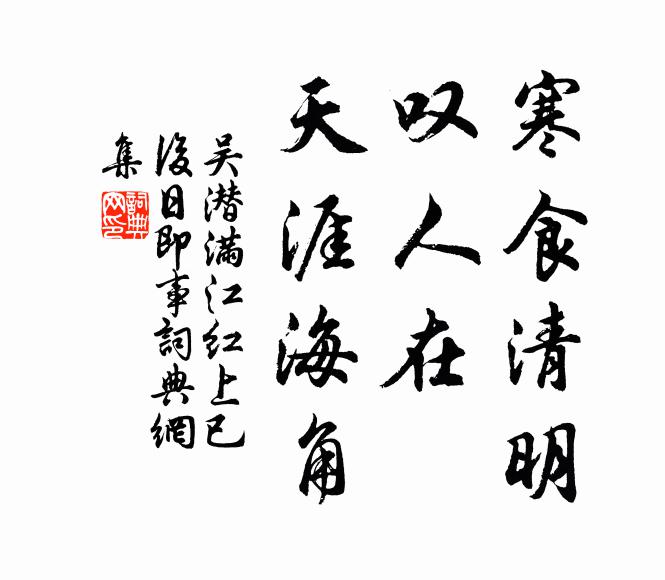 寒食清明
叹人在
天涯海角
吴潜满江红上巳
後日即事詞典網
集
詞典
网印